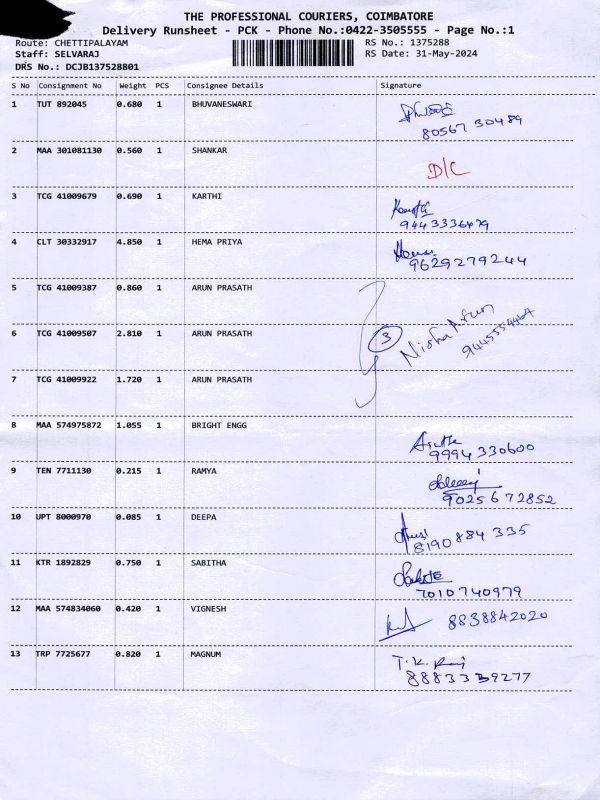 THE PROFESSIONAL COURIERS, COIMBATORE
Delivery Runsheet - PCK - Phone No.:0422-3505555 - Page No.:1
Route: CHETTIPALAYAM RS No.: 1375288
Staff: SELVARAJ RS Date: 31-May-2024
DRS No.: DCJB137528801
S No Consignment No Weight PCS Consignee Details Signature
1 TUT 892045 0.680 1 BHUVANESWARI
80567 30489
2 MAA 301081130 0.560 1 SHANKAR
D/C
3 TCG 41009679 0.690 1 KARTHI
9443336479
4 CLT 30332917 4.850 1 HEMA PRIYA
9629279244
5 TCG 41009387 0.860 1 ARUN PRASATH
6 TCG 41009507 2.810 1 ARUN PRASATH 3 Nisha Arun
7 TCG 41009922 1.720 1 ARUN PRASATH
8 MAA 574975872 1.055 1 BRIGHT ENGG
9994330600
9 TEN 7711130 0.215 1 RAMYA
9025672852
10 UPT 8000970 0.085 1 DEEPA
8190884335
11 KTR 1892829 0.750 1 SABITHA
7010740979
12 MAA 574834060 0.420 1 VIGNESH 8838842020
13 TRP 7725677 0.820 1 MAGNUM T.K. Raj